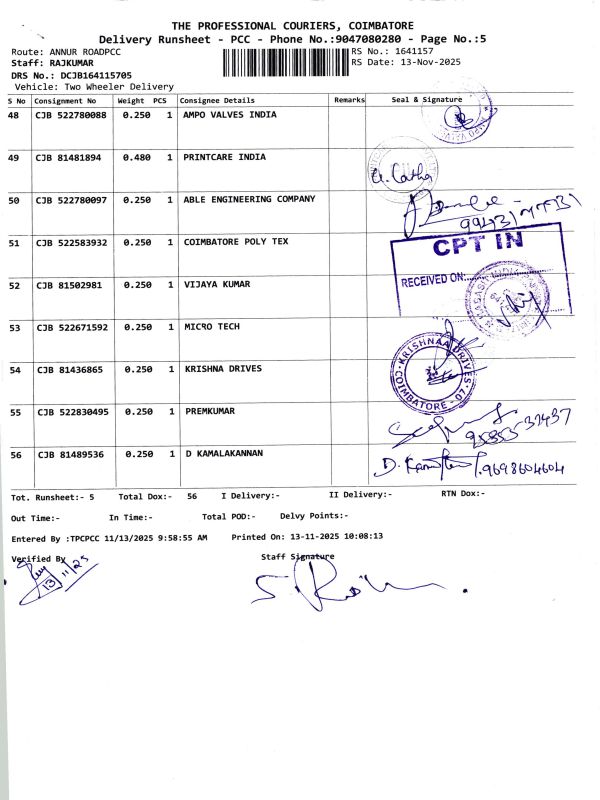 THE PROFESSIONAL COURIERS, COIMBATORE
Delivery Runsheet - PCC - Phone No.:9047080280 - Page No.:5
Route: ANNUR ROADPCC RS No.: 1641157
Staff: RAJKUMAR RS Date: 13-Nov-2025
DRS No.: DCJB164115705
Vehicle: Two Wheeler Delivery
S No Consignment No Weight PCS Consignee Details Remarks Seal & Signature
48 CJB 522780088 0.250 1 AMPO VALVES INDIA
49 CJB 81481894 0.480 1 PRINTCARE INDIA
50 CJB 522780097 0.250 1 ABLE ENGINEERING COMPANY
51 CJB 522583932 0.250 1 COIMBATORE POLY TEX
CPT IN
RECEIVED ON:
52 CJB 81502981 0.250 1 VIJAYA KUMAR
53 CJB 522671592 0.250 1 MICRO TECH
54 CJB 81436865 0.250 1 KRISHNA DRIVES
KRISHNAA DRIVES COIMBATORE - 07
55 CJB 522830495 0.250 1 PREMKUMAR
56 CJB 81489536 0.250 1 D KAMALAKANNAN
9698604604
Tot. Runsheet:- 5 Total Dox:- 56 I Delivery:- II Delivery:- RTN Dox:-
Out Time:- In Time:- Total POD:- Delvy Points:-
Entered By :TPCPCC 11/13/2025 9:58:55 AM Printed On: 13-11-2025 10:08:13
Verified By Staff Signature
13/11/25